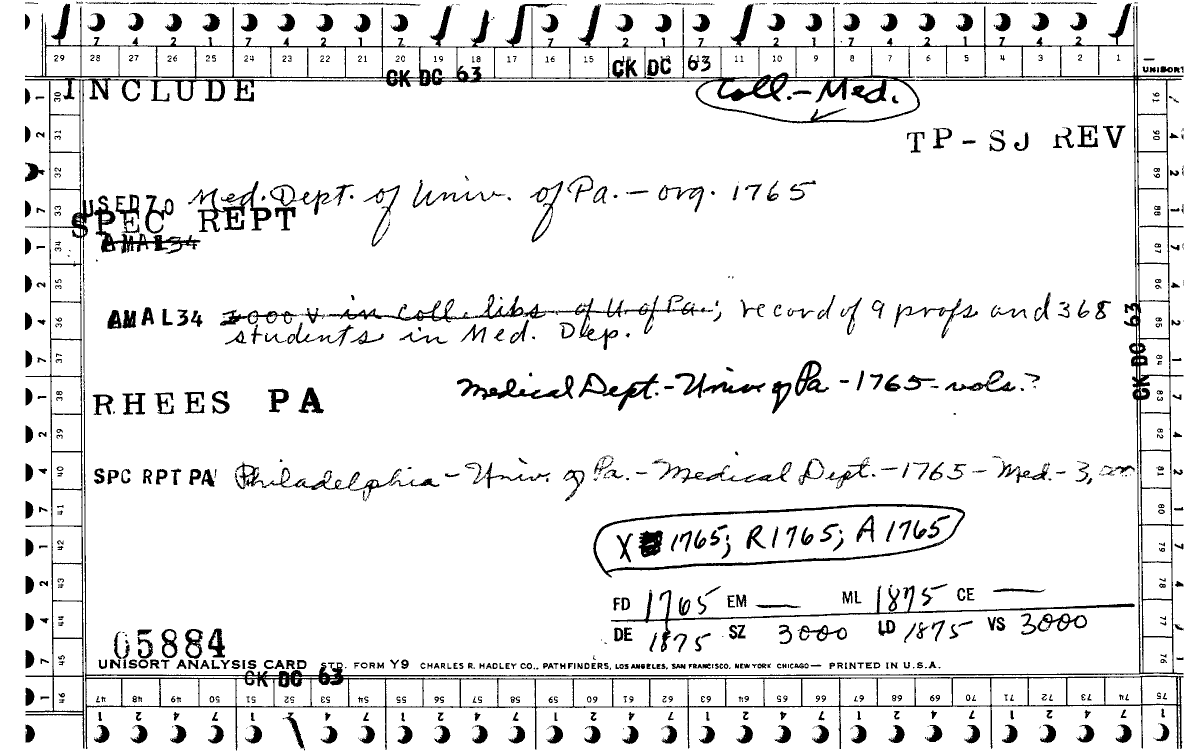 7 4 2 1 7 4 2 1 7 2 1 7 2 1 7 4 2 1 7 4 2 1
29 28 27 26 25 24 23 22 21 20 19 18 17 16 15 14 13 12 11 10 9 8 7 6 5 4 3 2 1
CK DC 63 CK DC 63 UNISORT
INCLUDE
Coll.-Med.
TP-SJ REV
USED70 Med. Dept. of Univ. of Pa. - org. 1765
SPEC REPT
AMAL34
AMAL34 3000 V in coll. libs. of U. of Pa.; record of 9 profs and 368
students in Med. Dep.
Medical Dept. - Univ of Pa - 1765 - vols.?
RHEES PA
SPC RPT PA Philadelphia - Univ. of Pa. - Medical Dept. - 1765 - Med. - 3,000
X 1765; R1765; A1765
FD 1765 EM — ML 1875 CE —
DE 1875 SZ 3000 LD 1875 VS 3000
05884
UNISORT ANALYSIS CARD STD. FORM Y9 CHARLES R. HADLEY CO., PATHFINDERS, LOS ANGELES, SAN FRANCISCO, NEW YORK CHICAGO — PRINTED IN U.S.A.
CK DC 63
CK DC 63
30 31 32 33 34 35 36 37 38 39 40 41 42 43 44 45 46
91 90 89 88 87 86 85 84 83 82 81 80 79 78 77 76 75
47 48 49 50 51 52 53 54 55 56 57 58 59 60 61 62 63 64 65 66 67 68 69 70 71 72 73 74